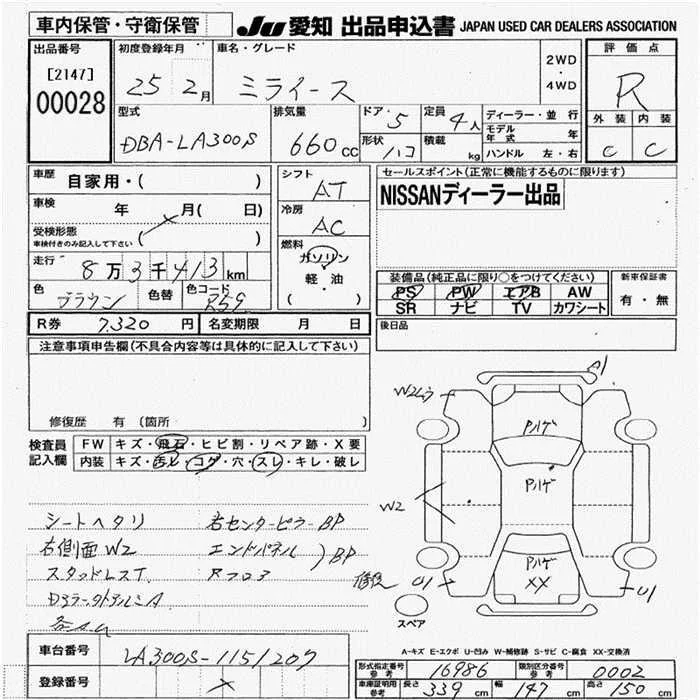 車内保管・守衛保管 JU 愛知 出品申込書 JAPAN USED CAR DEALERS ASSOCIATION
出品番号 初度登録年月 車名・グレード 2WD・4WD 評価点
[2147] 00028 25 2月 ミライース R
型式 排気量 ドア・5 定員 4人 ディーラー・並行 外装 内装
DBA-LA300S 660cc 形状 ハコ 積載 kg モデル年式 年 C C
ハンドル 左・右
車歴 自家用・( ) シフト AT セールスポイント(正常に機能するものに限ります)
車検 年 月( 日) 冷房 AC NISSANディーラー出品
受検形態 ( )
車検付きのみ記入して下さい
燃料 ガソリン 軽・油 ( )
走行 8万3千413km 装備品(純正品に限り○をつけてください) 新車保証書
色 ブラウン 色替 色コード R59 PS PW エアB AW 有・無
SR ナビ TV カワシート
R券 7,320円 名変期限 月 日 後日品
注意事項申告欄(不具合内容等は具体的に記入して下さい)
修復歴 有 (箇所 )
検査員記入欄 FW キズ・飛石・ヒビ割・リペア跡・X要
内装 キズ・汚レ・コゲ・穴・スレ・キレ・破レ
A1
W2ムラ
Pハゲ
Pハゲ
W2
Pハゲ
XX
修復 U1
U1
スペア
シートヘタリ 右センターピラーBP
右側面W2 エンドパネル )BP
スタッドレスT. Rフロア
A-キズ E-エクボ U-凹み W-補修跡 S-サビ C-腐食 XX-交換済
車台番号 LA300S-1151207
登録番号
形式指定番号 参考 16986 類別区分番号 参考 0002
車庫証明用 参考 長さ 339cm 幅 147cm 高さ 150cm